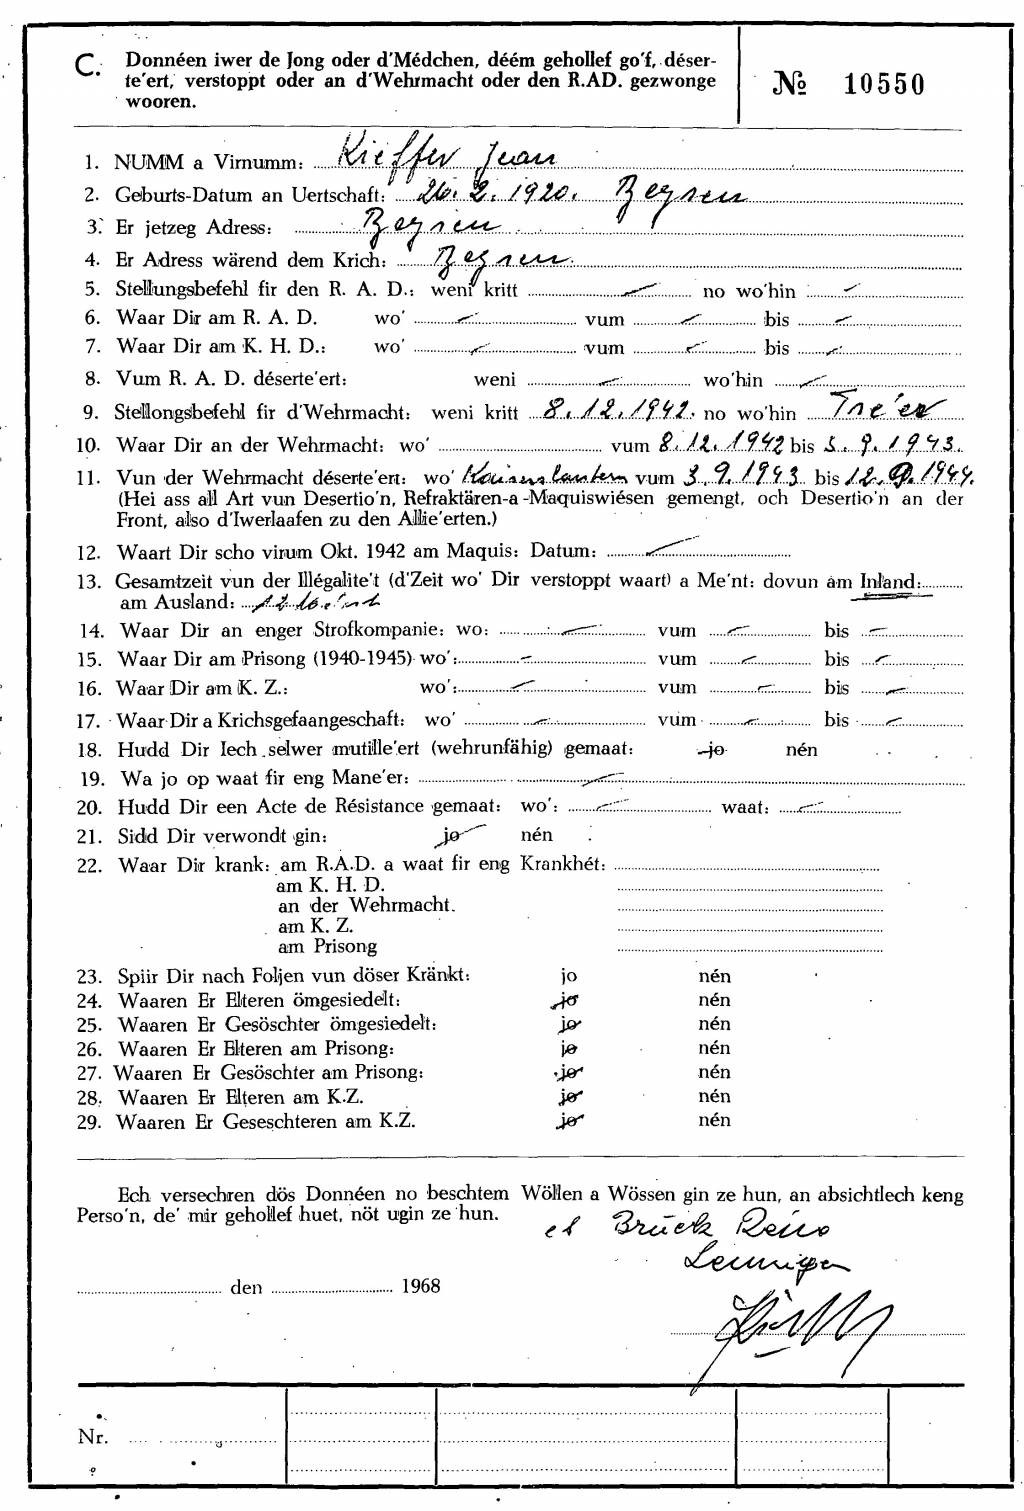 C. Donnéen iwer de Jong oder d'Médchen, déém gehollef go'f, déser-
te'ert, verstoppt oder an d'Wehrmacht oder den R.AD. gezwonge
wooren.
№ 10550
1. NUMM a Virnumm: Kieffer Jean
2. Geburts-Datum an Uertschaft: 26. 2. 1920. Beyren
3. Er jetzeg Adress: Beyren
4. Er Adress wärend dem Krich: Beyren.
5. Stellungsbefehl fir den R. A. D.: weni kritt — no wo'hin —
6. Waar Dir am R. A. D. wo' — vum — bis —
7. Waar Dir am K. H. D.: wo' — vum — bis —
8. Vum R. A. D. déserte'ert: weni — wo'hin —
9. Stellongsbefehl fir d'Wehrmacht: weni kritt 8.12.1942. no wo'hin Tre'er
10. Waar Dir an der Wehrmacht: wo' vum 8.12.1942 bis 3.9.1943.
11. Vun der Wehrmacht déserte'ert: wo' Kaiserslautern vum 3.9.1943 bis 12.9.1944.
(Hei ass all Art vun Desertio'n, Refraktären-a-Maquiswiésen gemengt, och Desertio'n an der
Front, also d'Iwerlaafen zu den Allie'erten.)
12. Waart Dir scho virum Okt. 1942 am Maquis: Datum: —
13. Gesamtzeit vun der Illégalite't (d'Zeit wo' Dir verstoppt waart) a Me'nt: dovun am Inland:
am Ausland: 12 Me'nt
14. Waar Dir an enger Strofkompanie: wo: — vum — bis —
15. Waar Dir am Prisong (1940-1945) wo': — vum — bis —
16. Waar Dir am K. Z.: wo': — vum — bis —
17. Waar Dir a Krichsgefaangeschaft: wo' — vum — bis —
18. Hudd Dir Iech selwer mutille'ert (wehrunfähig) gemaat: jo nén
19. Wa jo op waat fir eng Mane'er: —
20. Hudd Dir een Acte de Résistance gemaat: wo': — waat: —
21. Sidd Dir verwondt gin: jo nén
22. Waar Dir krank: am R.A.D. a waat fir eng Krankhét:
am K. H. D.
an der Wehrmacht.
am K. Z.
am Prisong
23. Spiir Dir nach Foljen vun döser Kränkt: jo nén
24. Waaren Er Elteren ömgesiedelt: jo nén
25. Waaren Er Gesöschter ömgesiedelt: jo nén
26. Waaren Er Elteren am Prisong: jo nén
27. Waaren Er Gesöschter am Prisong: jo nén
28. Waaren Er Elteren am K.Z. jo nén
29. Waaren Er Geseschteren am K.Z. jo nén
Ech versechren dös Donnéen no beschtem Wöllen a Wössen gin ze hun, an absichtlech keng
Perso'n, de' mir gehollef huet, nöt ugin ze hun.
Bruck
den 1968
Nr.